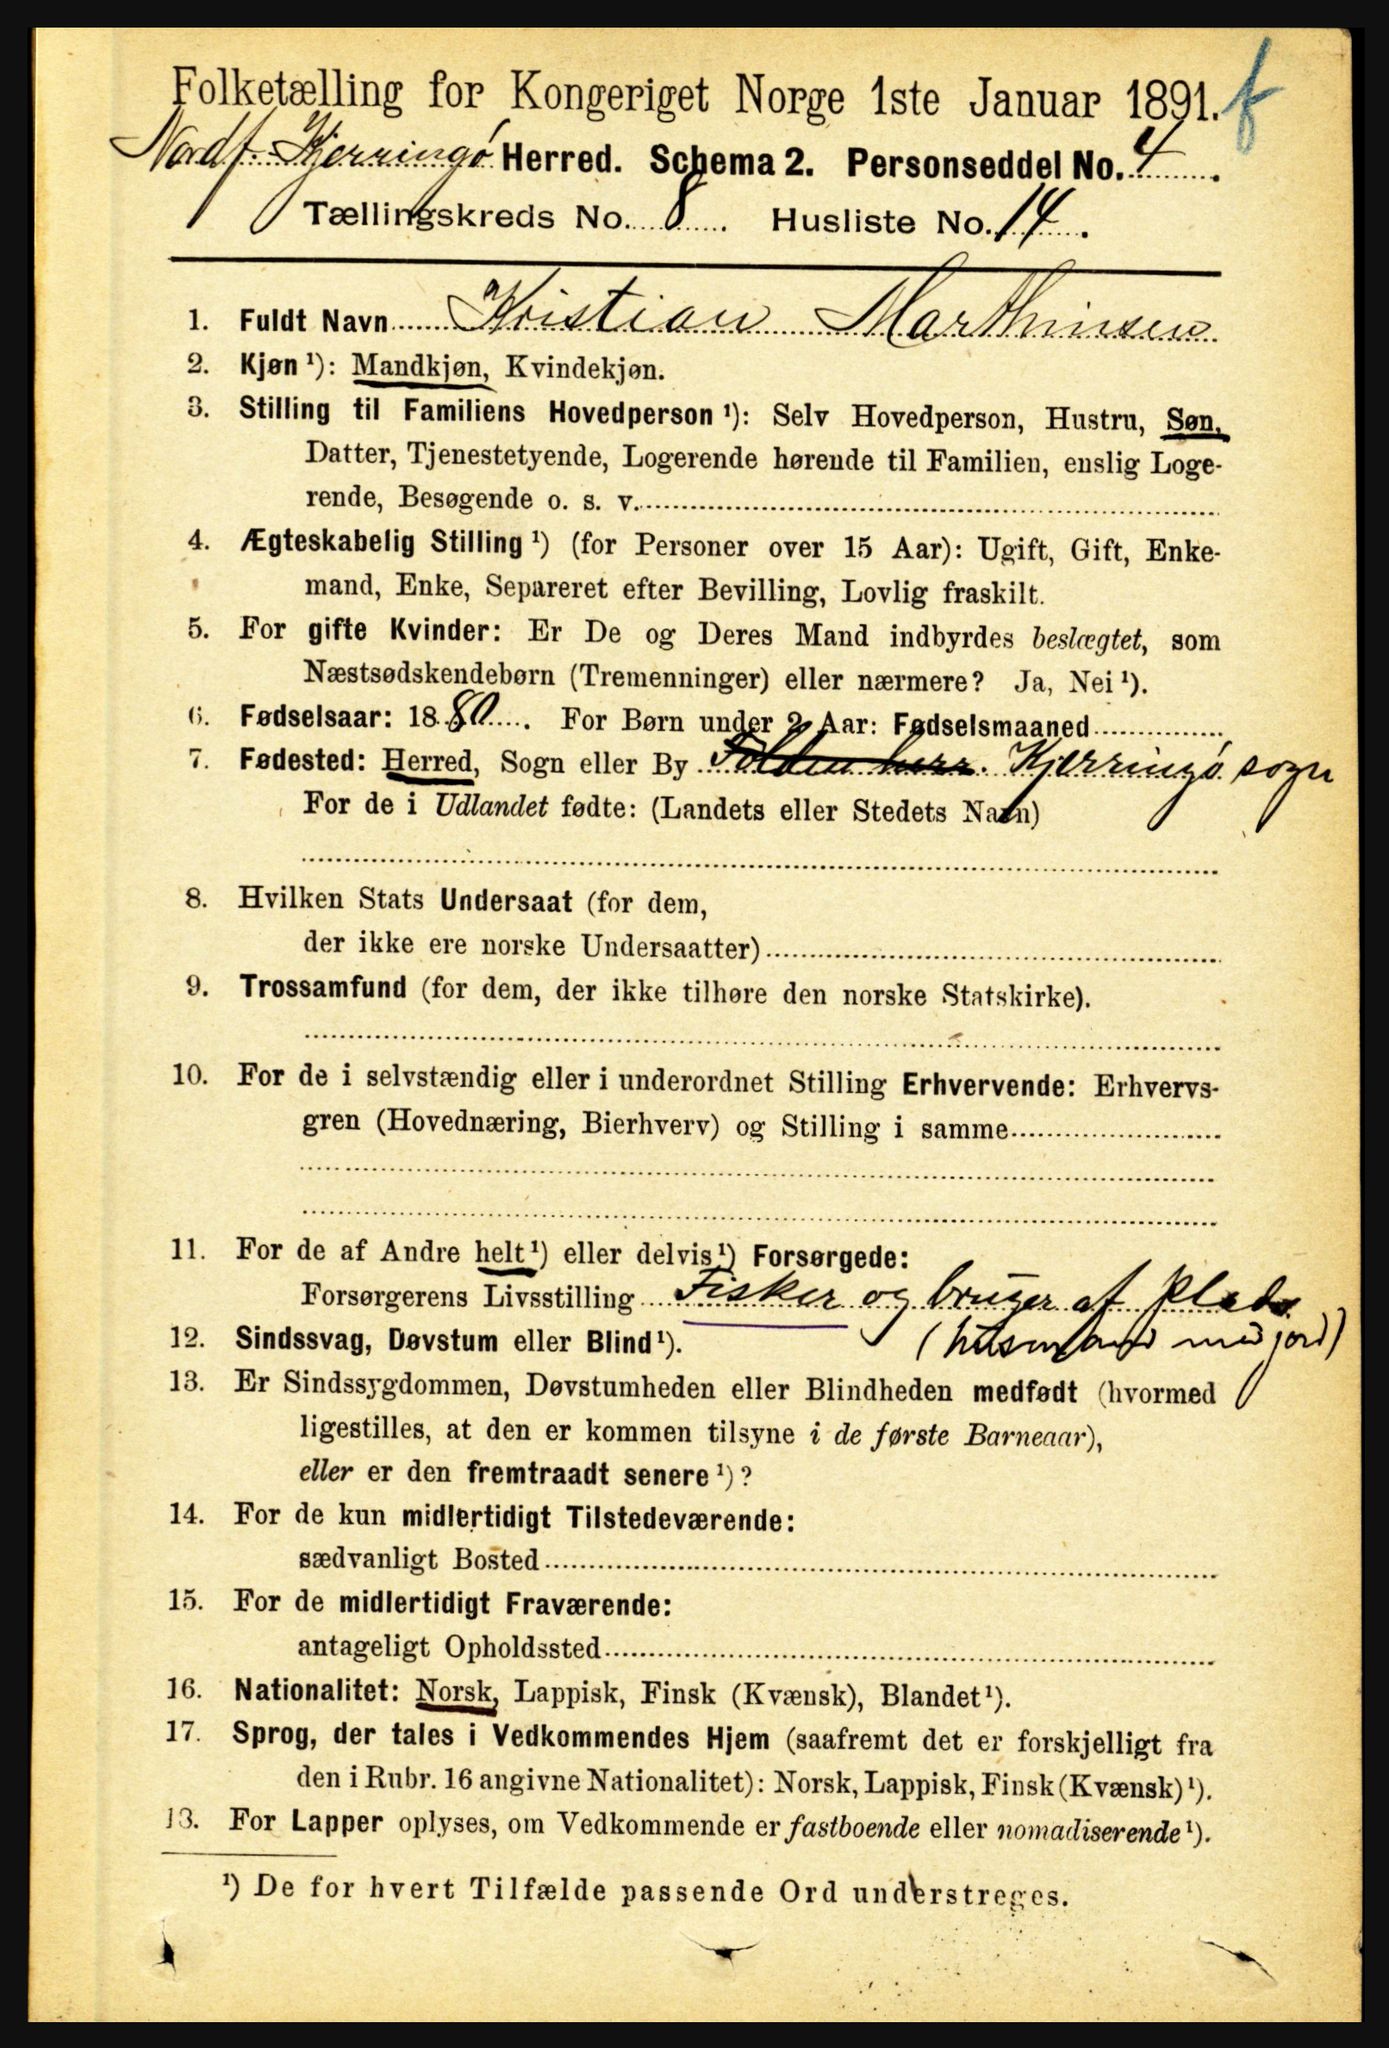 Folketælling for Kongeriget Norge 1ste Januar 1891. f
Nordf. Kjerringø Herred. Schema 2. Personseddel No. 4.
Tællingskreds No. 8. Husliste No. 14.
1. Fuldt Navn Kristian Marthinsen
2. Kjøn ¹): Mandkjøn, Kvindekjøn.
3. Stilling til Familiens Hovedperson ¹): Selv Hovedperson, Hustru, Søn,
Datter, Tjenestetyende, Logerende hørende til Familien, enslig Loge-
rende, Besøgende o. s. v.
4. Ægteskabelig Stilling ¹) (for Personer over 15 Aar): Ugift, Gift, Enke-
mand, Enke, Separeret efter Bevilling, Lovlig fraskilt.
5. For gifte Kvinder: Er De og Deres Mand indbyrdes beslægtet, som
Næstsødskendebørn (Tremenninger) eller nærmere? Ja, Nei ¹).
6. Fødselsaar: 1880. For Børn under 2 Aar: Fødselsmaaned
7. Fødested: Herred, Sogn eller By Folden herr. Kjerringø sogn
For de i Udlandet fødte: (Landets eller Stedets Navn)
8. Hvilken Stats Undersaat (for dem,
der ikke ere norske Undersaatter)
9. Trossamfund (for dem, der ikke tilhøre den norske Statskirke).
10. For de i selvstændig eller i underordnet Stilling Erhvervende: Erhvervs-
gren (Hovednæring, Bierhverv) og Stilling i samme
11. For de af Andre helt ¹) eller delvis ¹) Forsørgede:
Forsørgerens Livsstilling Fisker og bruger af Plads
12. Sindssvag, Døvstum eller Blind ¹). (husmand med jord)
13. Er Sindssygdommen, Døvstumheden eller Blindheden medfødt (hvormed
ligestilles, at den er kommen tilsyne i de første Barneaar),
eller er den fremtraadt senere ¹)?
14. For de kun midlertidigt Tilstedeværende:
sædvanligt Bosted
15. For de midlertidigt Fraværende:
antageligt Opholdssted
16. Nationalitet: Norsk, Lappisk, Finsk (Kvænsk), Blandet ¹).
17. Sprog, der tales i Vedkommendes Hjem (saafremt det er forskjelligt fra
den i Rubr. 16 angivne Nationalitet): Norsk, Lappisk, Finsk (Kvænsk) ¹).
13. For Lapper oplyses, om Vedkommende er fastboende eller nomadiserende ¹).
¹) De for hvert Tilfælde passende Ord understreges.